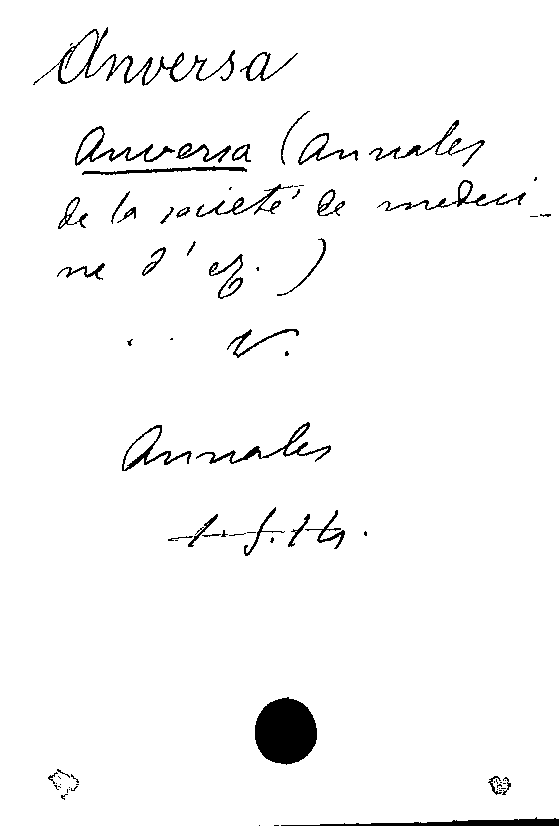 Anversa
Anversa (Annales
de la societé de medeci-
ne d'
V.
Annales